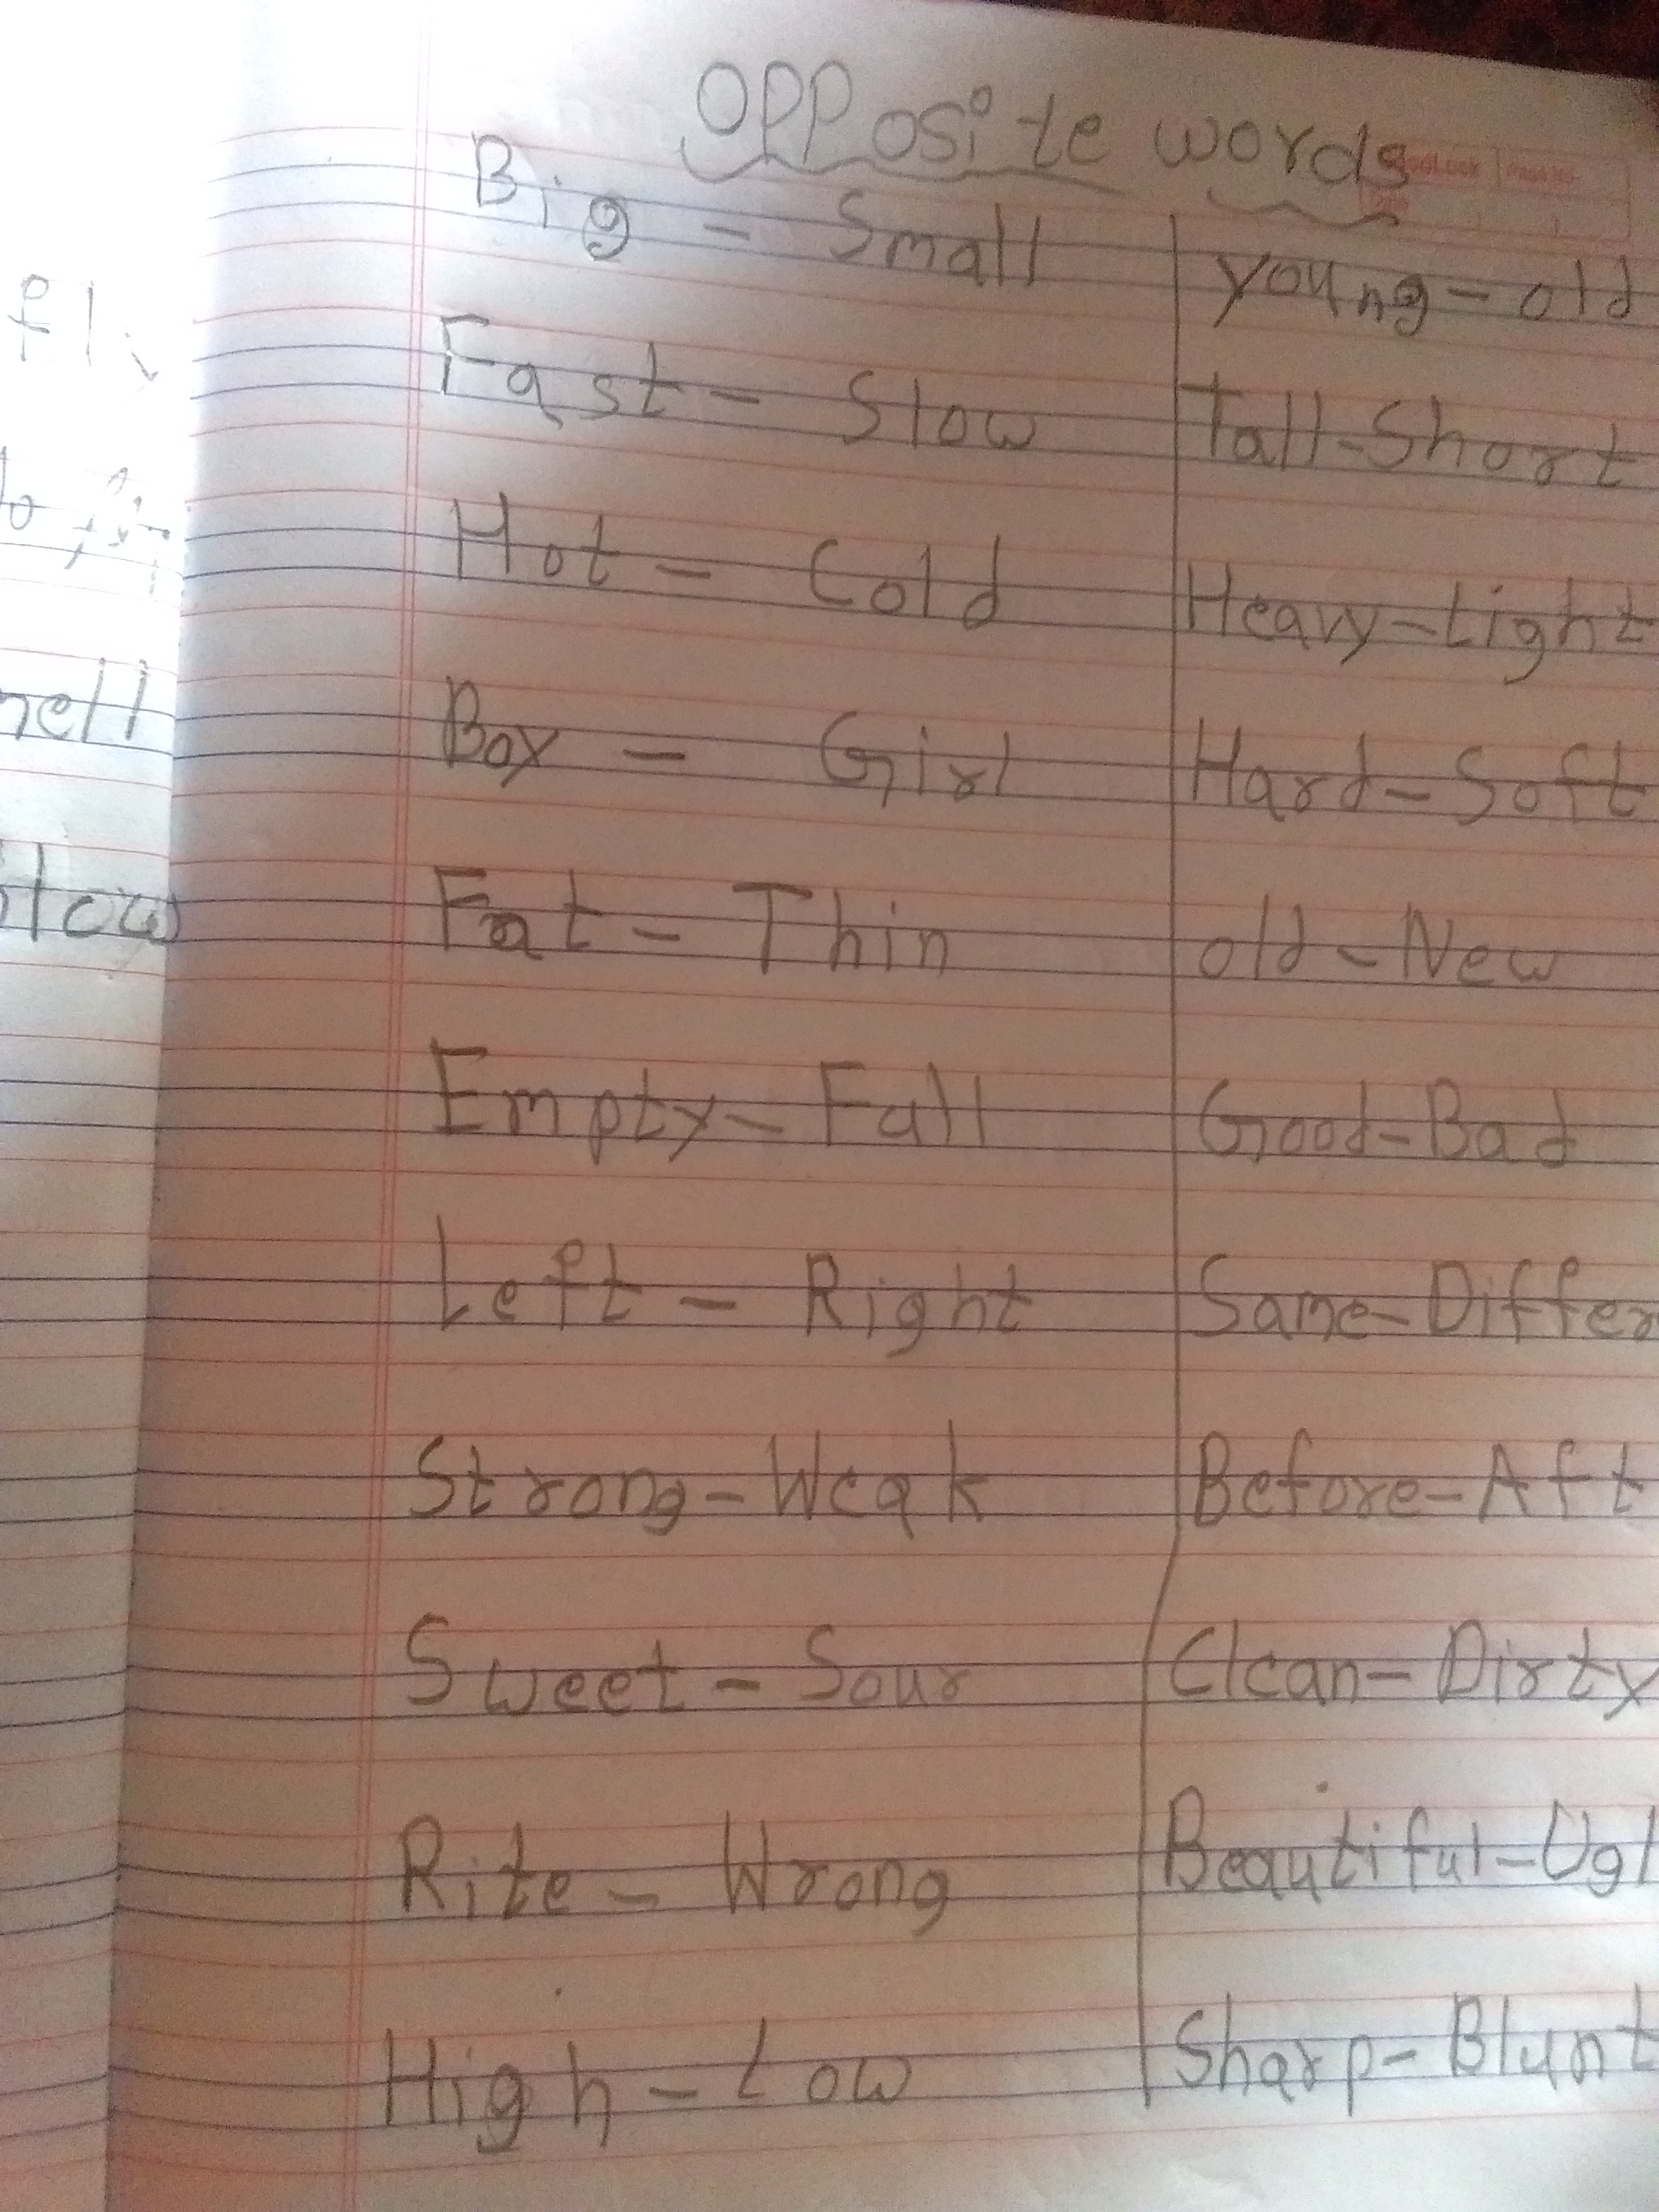 Opposite words
Big - Small
Fast - Slow
Hot - Cold
Boy - Girl
Fat - Thin
Empty - Full
Left - Right
Strong - Weak
Sweet - Sour
Rite - Wrong
High - Low
young - old
Tall - Short
Heavy - Light
Hard - Soft
old - New
Good - Bad
Same - Differ
Before - Aft
Clean - Dirty
Beautiful - Ugl
Sharp - Blunt
fly
to
hell
slow